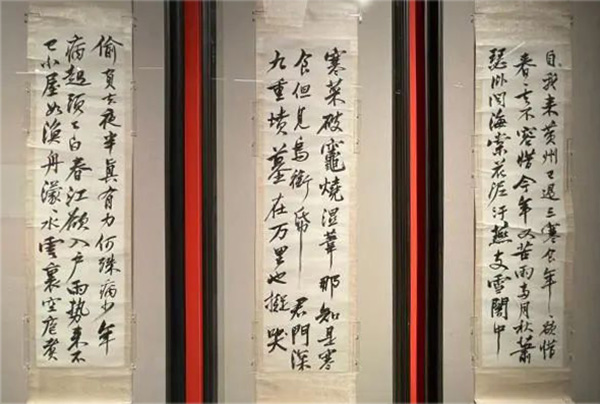 自我来黄州已過三寒食年〻欲惜
春〻去不容惜今年又苦雨兩月秋蕭
瑟卧聞海棠花泥汙燕支雪闇中
偷負去夜半真有力何殊病少年
病起頭已白春江欲入户雨勢来不
已小屋如漁舟濛〻水雲裏空庖煮
寒菜破竈燒濕葦那知是寒
食但見烏銜帋君門深
九重墳墓在万里也擬哭